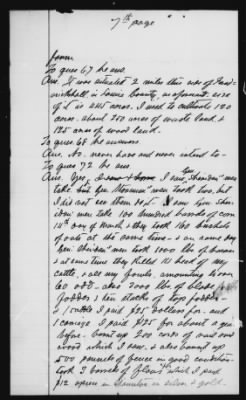 7th page
farm.
To ques 67 he ans
Ans. It was situated 2 miles this side of
in Louisa County, as
of it is 445 acres. I used to cultivate 120
acres. about 200 acres of waste land &
125 acres of wood land.
To ques 68 he answers
Ans. No. never have and never intend to-
To ques 72 he ans
Ans. Yes, I saw Gen Sheridan's men
take but Gen men took two, but
I did not see them do it - I saw Gen Sher-
idan's men take 100 hundred bands of corn
15th day of March & they took 160 bushels
of oats at the same time- & on same day
Gen Sheridan's men took 1000 lbs of bacon
& at same time they killed 11 head of my
cattle, & all my fowls, amounting to over
60 odd- also 3000 lbs of blades
fodder & ten stacks of top fodder-
& 1 cattle I paid $25 dollars for- and
1 cow I paid $35 for about a year
before- burnt up 200 cords of oak
wood which I own, & also burnt up
500 pannels of fence in good condition.
took 2 barrels of flour which I paid
$12 apiece in silver & gold.